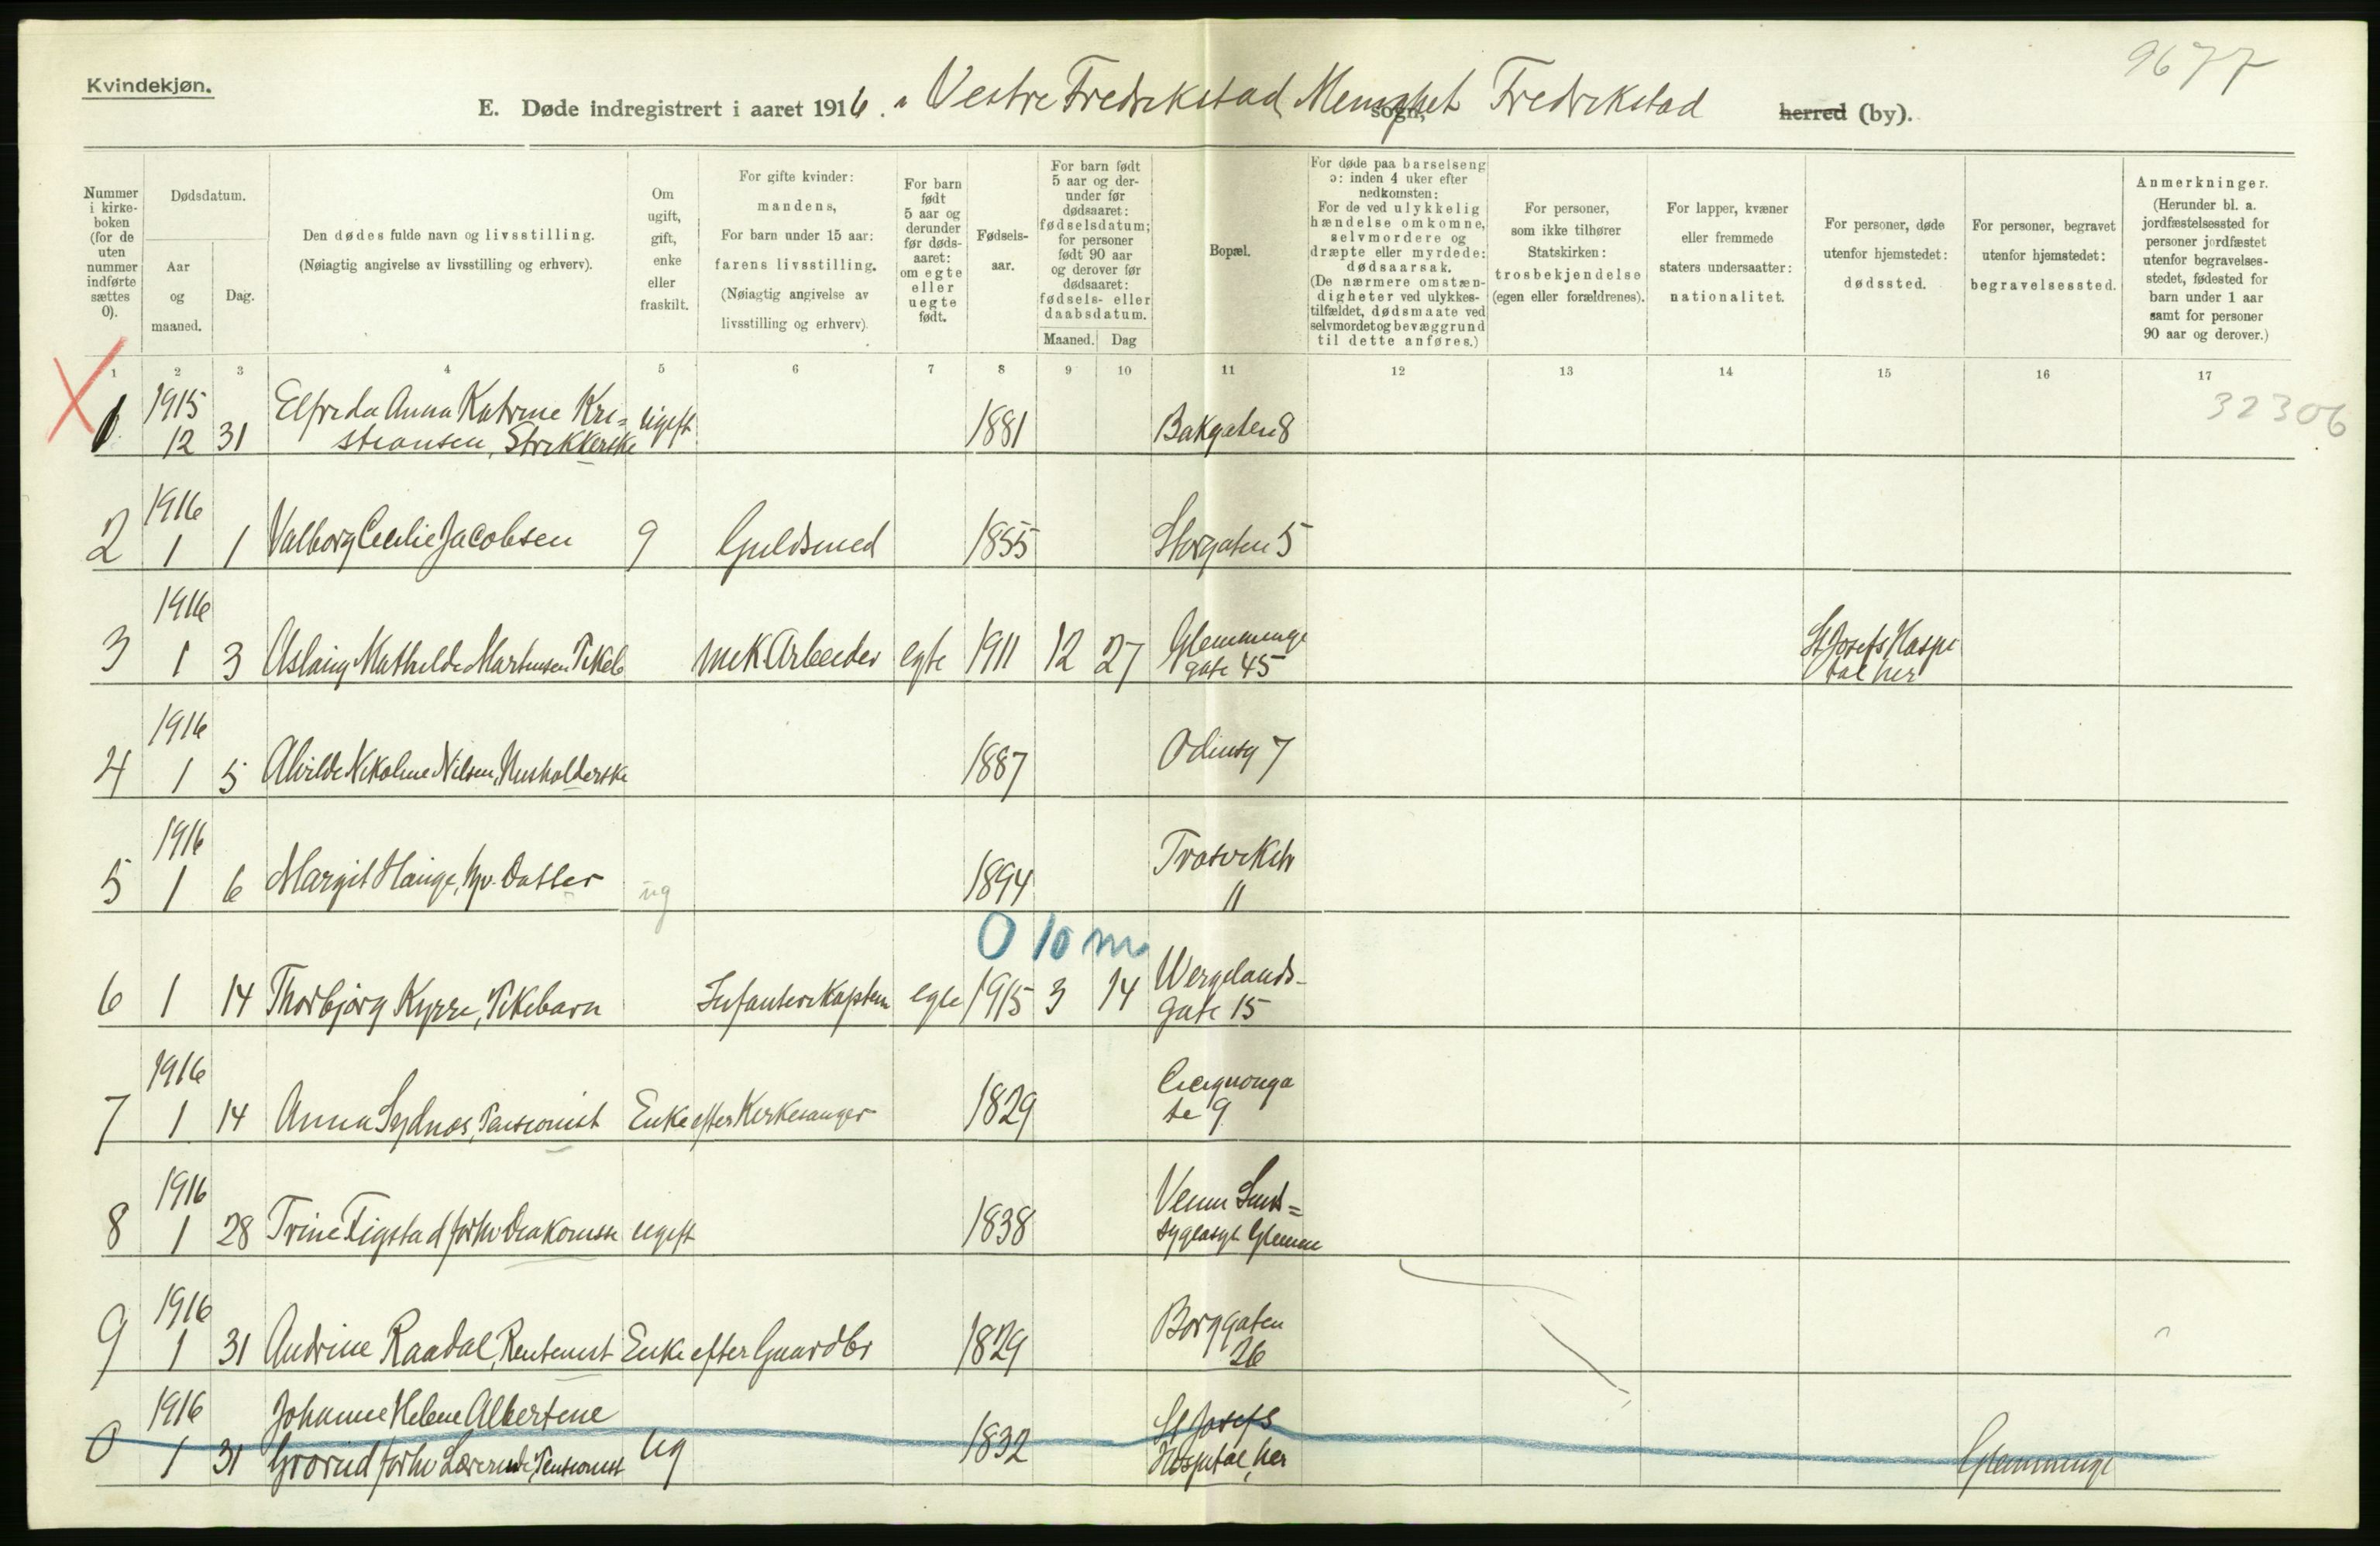 9677
Kvindekjøn.
E. Døde indregistrert i aaret 1916. Vestre Fredrikstad Menighet sogn, Fredrikstad herred (by).
Nummer i kirkeboken (for de uten nummer indførte sættes 0).
Dødsdatum.
Aar og maaned.
Dag.
Den dødes fulde navn og livsstilling.
(Nøiagtig angivelse av livsstilling og erhverv).
Om ugift, gift, enke eller fraskilt.
For gifte kvinder: mandens,
For barn under 15 aar: farens livsstilling.
(Nøiagtig angivelse av livsstilling og erhverv).
For barn født 5 aar og derunder før dødsaaret: om egte eller uegte født.
Fødselsaar.
For barn født 5 aar og derunder før dødsaaret: fødselsdatum; for personer født 90 aar og derover før dødsaaret: fødsels- eller daabsdatum.
Maaned. Dag
Bopæl.
For døde paa barselseng ɔ: inden 4 uker efter nedkomsten:
For de ved ulykkelig hændelse omkomne, selvmordere og dræpte eller myrdede: dødsaarsak.
(De nærmere omstændigheter ved ulykkestilfældet, dødsmaate ved selvmordet og bevæggrund til dette anføres.)
For personer, som ikke tilhører Statskirken: trosbekjendelse (egen eller forældrenes).
For lapper, kvæner eller fremmede staters undersaatter: nationalitet.
For personer, døde utenfor hjemstedet: dødssted.
For personer, begravet utenfor hjemstedet: begravelsessted.
Anmerkninger.
(Herunder bl. a. jordfæstelsessted for personer jordfæstet utenfor begravelsesstedet, fødested for barn under 1 aar samt for personer 90 aar og derover.)
1 2 3 4 5 6 7 8 9 10 11 12 13 14 15 16 17
1 1915 12 31 Elfrida Anna Katrine Kristiansen, Strikkerske ugift 1881 Bakgaten 8 32306
2 1916 1 1 Valborg Cecilie Jacobsen g Guldsmed 1855 Storgaten 5
3 1916 1 3 Aslaug Mathilde Martinsen, Pikeb mek Arbeider egte 1911 12 27 Glemmingegate 45 St Josefs Hospital her
4 1916 1 5 Alvilde Nikoline Nilsen, Husholderske 1887 Odinsg 7
5 1916 1 6 Margit Hauge, hjv. Datter ug 1894 Trosvikstr 11
0 10 m
6 1 14 Thorbjørg Kyrre, Pikebarn Infanterikaptein egte 1915 3 14 Wergelandsgate 15
7 1916 1 14 Anna Sydnes, Pensionist Enke efter Kirkesanger 1829 Cicignongate 9
8 1916 1 28 Trine Tigstad forhv Diakonisse ugift 1838 Glemme
9 1916 1 31 Andrine Raadal, Rentenist Enke efter Gaardbr 1829 Borggaten 26
0 1916 1 31 Johanne Helene Albertine Grorud forhv Lærerinde, Pensionist ug 1832 St Josefs Hospital, her Glemminge